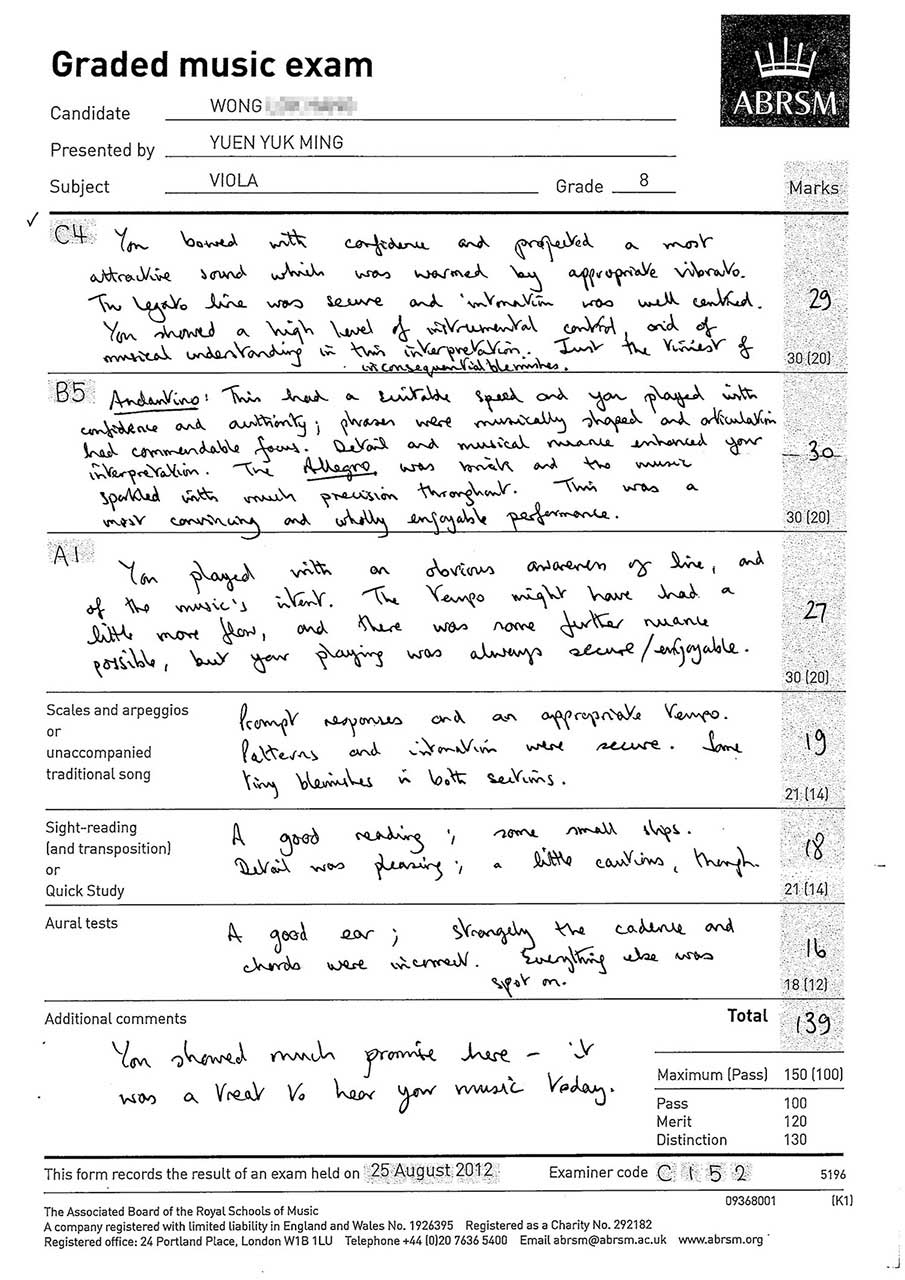 Graded music exam
ABRSM
Candidate WONG
Presented by YUEN YUK MING
Subject VIOLA Grade 8 Marks
✓
C4 You bowed with confidence and projected a most
attractive sound which was warmed by appropriate vibrato.
The legato line was secure and intonation was well centred.
You showed a high level of instrumental control, and of
musical understanding in this interpretation. Just the tiniest of
inconsequential blemishes.
29
30 (20)
B5 Andantino: This had a suitable speed and you played with
confidence and authority; phrases were musically shaped and articulation
had commendable focus. Detail and musical nuance enhanced your
interpretation. The Allegro was brisk and the music
sparkled with much precision throughout. This was a
most convincing and wholly enjoyable performance.
30
30 (20)
A1
You played with an obvious awareness of line, and
of the music's intent. The tempo might have had a
little more flow, and there was some further nuance
possible, but your playing was always secure/enjoyable.
27
30 (20)
Scales and arpeggios
or
unaccompanied
traditional song
Prompt responses and an appropriate tempo.
Patterns and intonation were secure. Some
tiny blemishes in both sections.
19
21 (14)
Sight-reading
(and transposition)
or
Quick Study
A good reading; some small slips.
Detail was pleasing; a little cautious, though.
18
21 (14)
Aural tests
A good ear; strangely the cadence and
chords were incorrect. Everything else was
spot on.
16
18 (12)
Additional comments
You showed much promise here – it
was a treat to hear your music today.
Total 139
Maximum (Pass) 150 (100)
Pass 100
Merit 120
Distinction 130
This form records the result of an exam held on 25 August 2012 Examiner code C 1 5 2 5196
09368001 (K1)
The Associated Board of the Royal Schools of Music
A company registered with limited liability in England and Wales No. 1926395 Registered as a Charity No. 292182
Registered office: 24 Portland Place, London W1B 1LU Telephone +44 (0)20 7636 5400 Email abrsm@abrsm.ac.uk www.abrsm.org